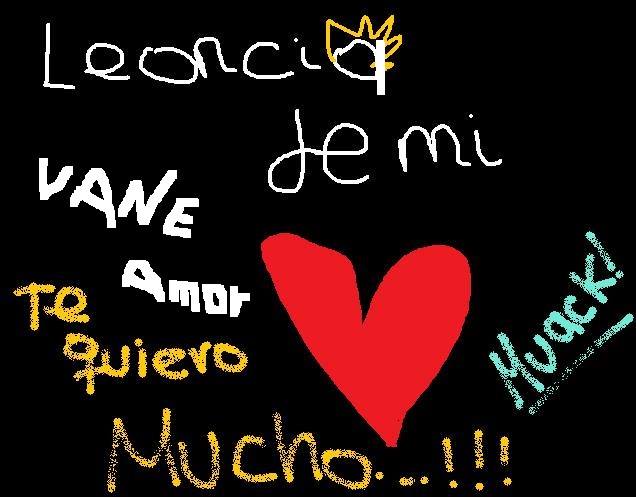 Leoncia
de mi
VANE
Amor
Te
quiero
Mucho...!!!
Muack!